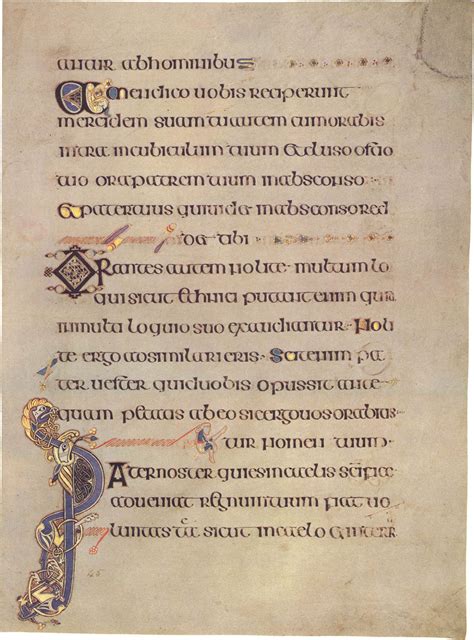 antur abhominibus
Amendico uobis reciperunt
mercidem suam tu autem cum orabis
intra incubiculum tuum & cluso ostio
tuo ora patrem tuum inabsconso
& pater tuus qui uid& inabsconso red
d& tibi
Orantes autem nolite multum lo
qui sicut ethnici putant enim quia
inmulto loquio suo exaudiantur Noli
te ergo adsimilari eis Scit enim pa
ter uester quid uobis opus sit ante
quam petatis ab eo sic ergo uos orabitis
tur nomen tuum
Pater noster qui es in caelis scifice
adueniat regnum tuum fiat uo
luntas tua sicut in caelo & in terr
45